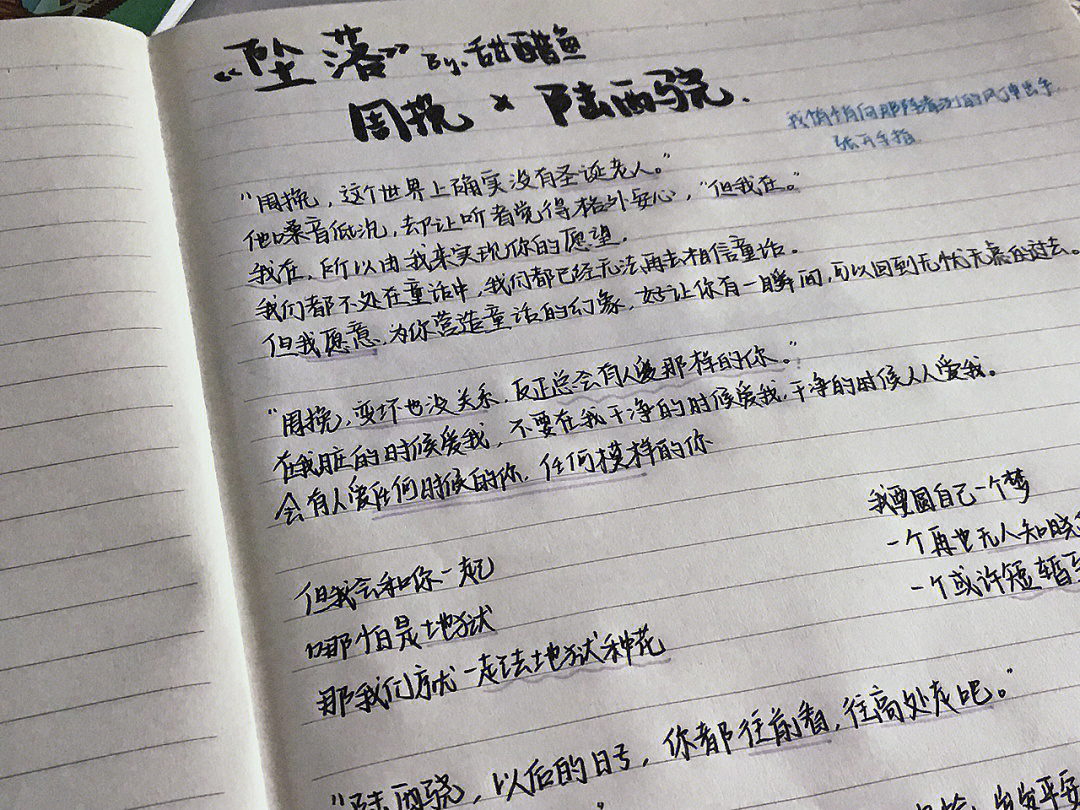 “坠落” By.甜醋鱼
周挽 × 陆西骁.
我悄悄向那阵凛冽的风伸出手
张开手指
“周挽，这个世界上确实没有圣诞老人。”
他嗓音低沉，却让听者觉得格外安心，“但我在。”
我在，所以由我来实现你的愿望，
我们都不处在童话中，我们都已经无法再去相信童话。
但我愿意，为你营造童话的幻象，好让你有一瞬间，可以回到无忧无虑的过去。
“周挽，变坏也没关系，反正总会有人爱那样的你。”
在我脏的时候爱我，不要在我干净的时候爱我，干净的时候人人爱我。
会有人爱任何时候的你，任何模样的你
我要圆自己一个梦
一个再也无人知晓
一个或许短暂
但我会和你一起
哪怕是地狱
那我们就一起去地狱种花
“陆西骁，以后的日子，你都往前看，往高处走吧。”
岁岁平安